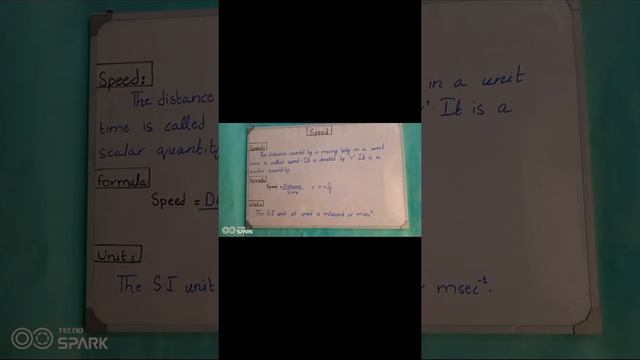 Speed
Speed:
The distance covered by a moving body in a unit
time is called speed. It is denoted by "v". It is a
scalar quantity.
Formula
Speed = Distance / time = v = S / t
Unit:
The S.I unit of speed is m/second or msec⁻¹.
TECNO
SPARK
Speed:
The distance
in a unit
time is called
It is a
scalar quantity
Formula
Speed = Di
Unit:
The S.I unit
msec⁻¹.
TECNO
SPARK